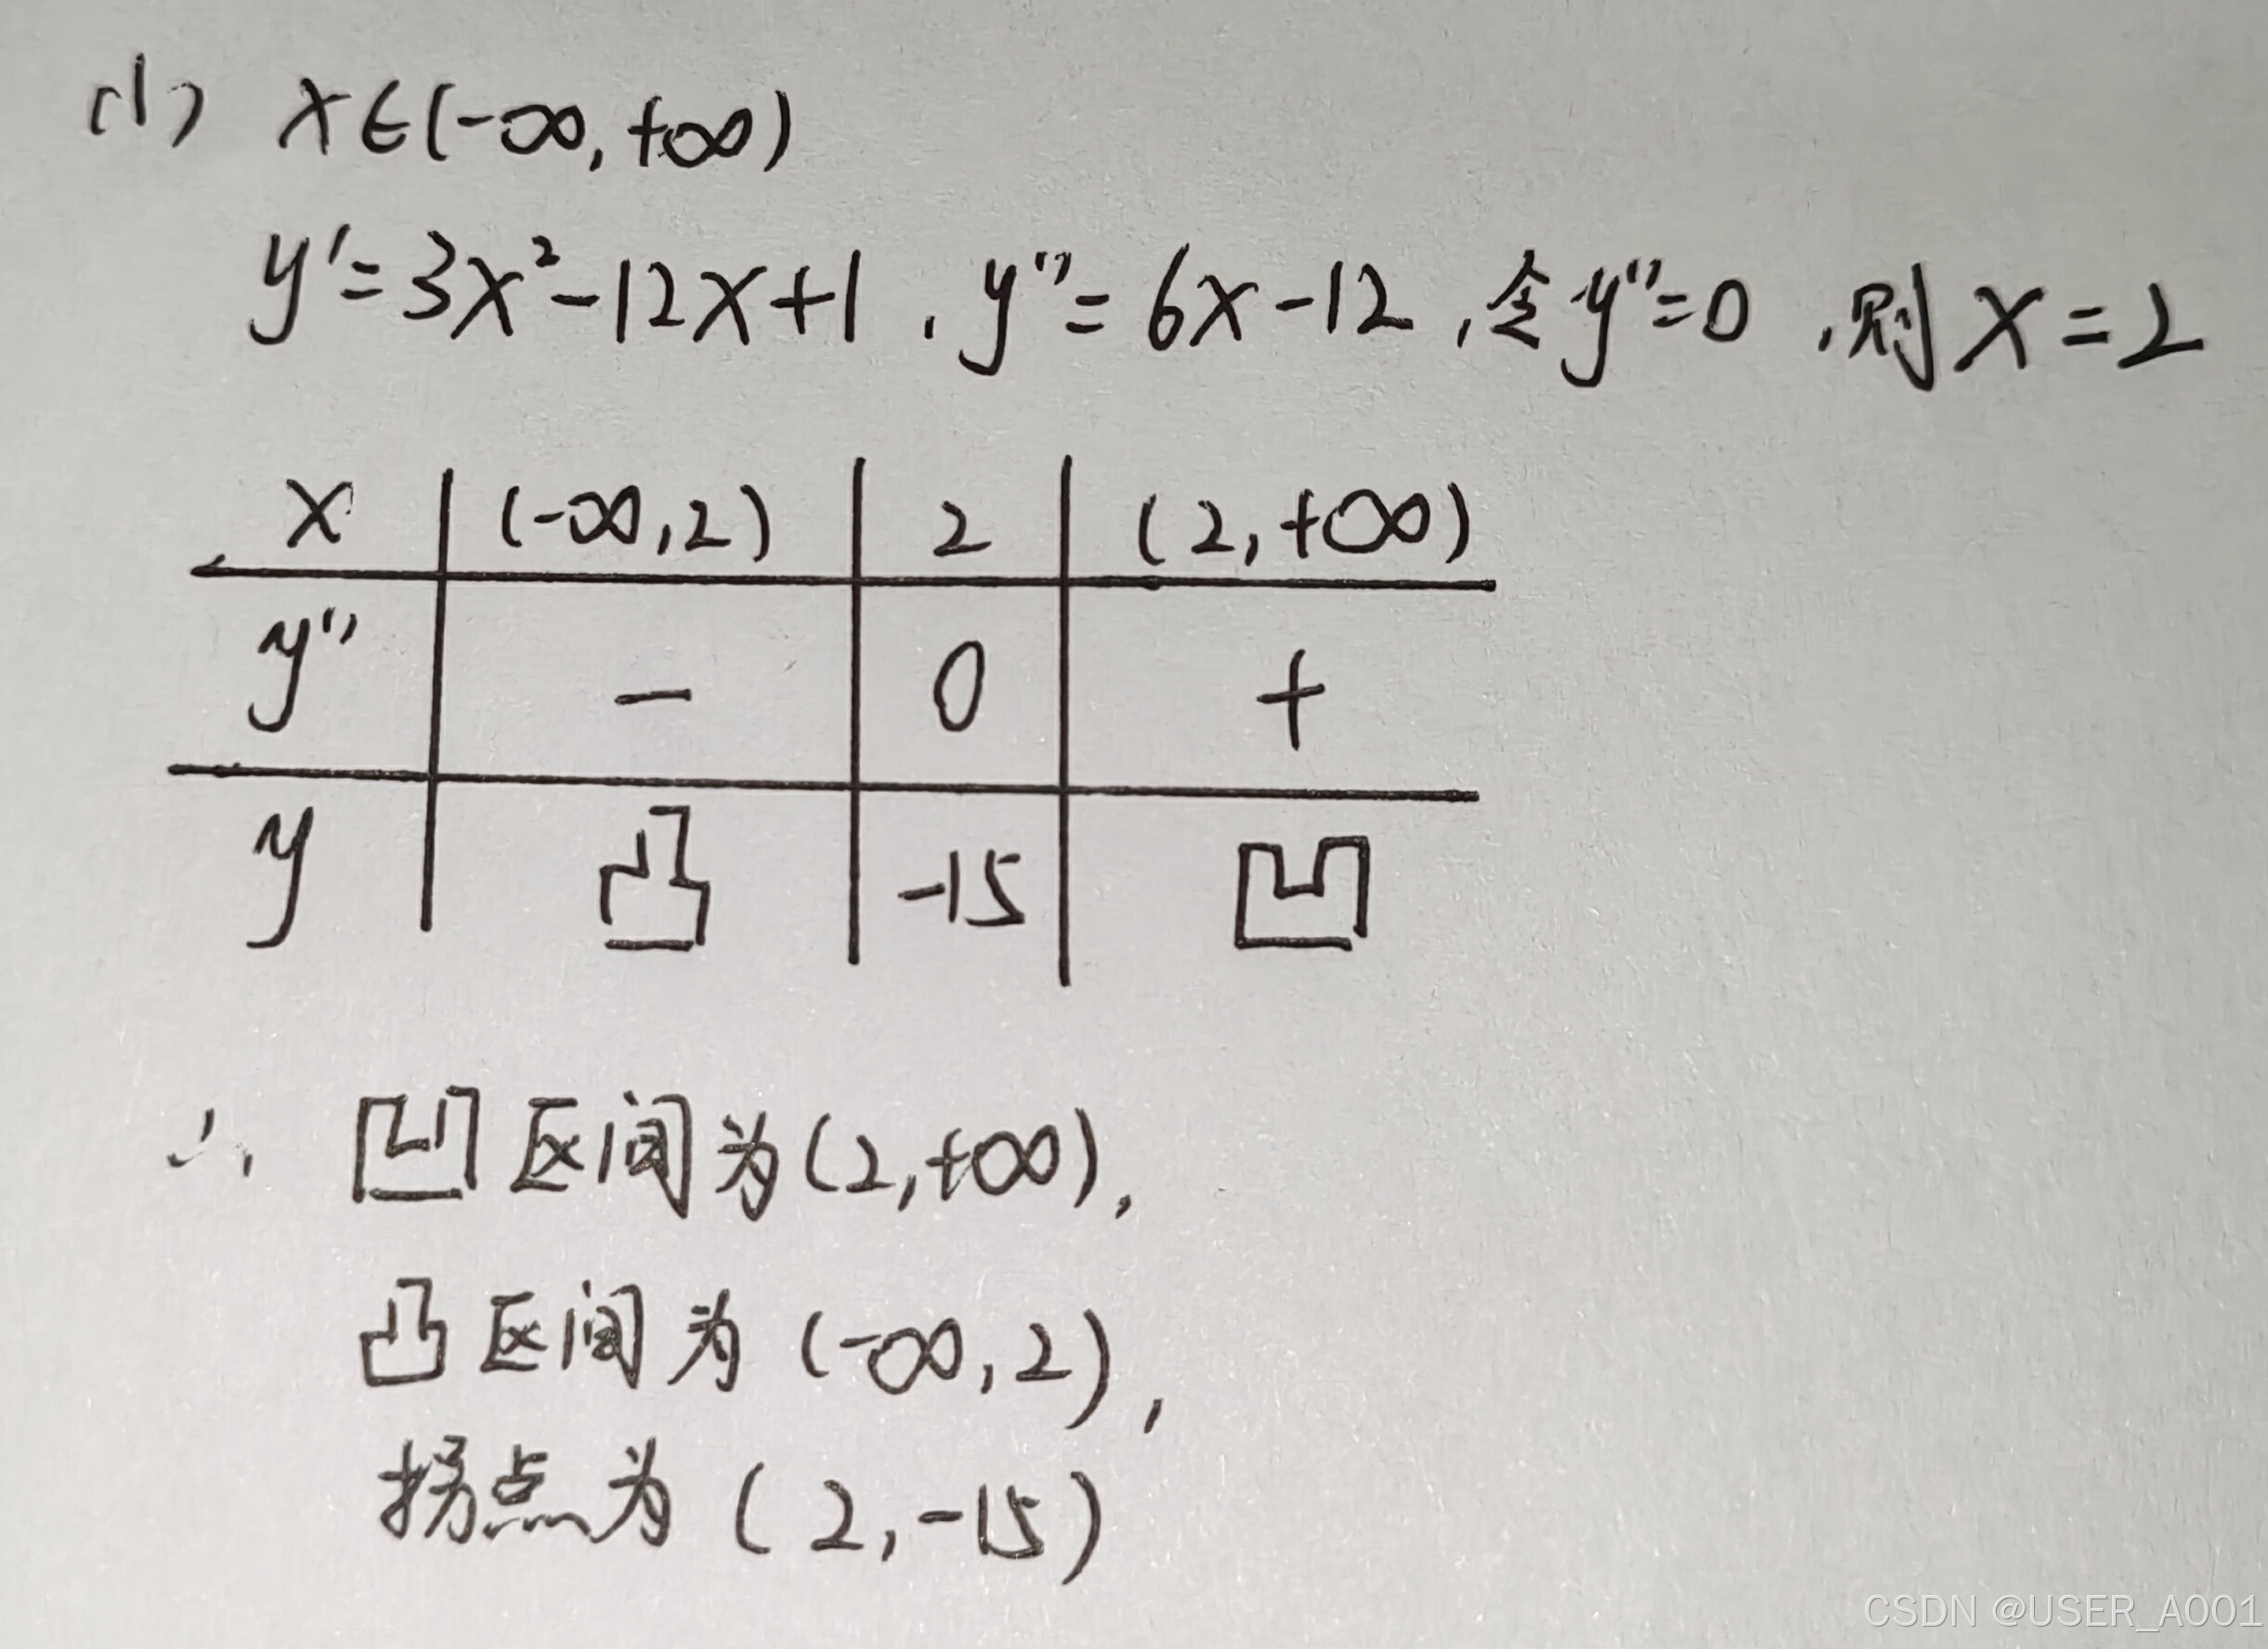 (1) x∈(-∞,+∞)
y'=3x²-12x+1,y''=6x-12,令y''=0,则x=2
x (-∞,2) 2 (2,+∞)
y'' - 0 +
y 凸 -15 凹
∴ 凹区间为(2,+∞),
凸区间为(-∞,2),
拐点为(2,-15)
CSDN @USER_A001